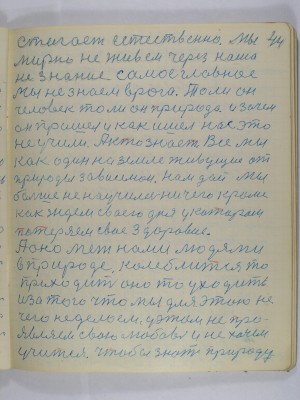 стигает естественно. Мы 44
мирно не живем через наша
не знание самое главное
мы не знаем врога. То ли он
человек то ли он природа и зачем
он пришел и как ишел нас это
не учили. А кто знает Все мы
как один на земле живущие от
природы зависемои, нам дай мы
больше не научились ничего кроме
как ждем своего дня у котором
потеряем свое здоровие.
А оно меж нами людями
в природе, колеблится то
приходить оно то уходить
из за того что мы для этого не
чего не делоем, у этом не про-
являем свою любовь и не хочем
учится, чтобы знать природу